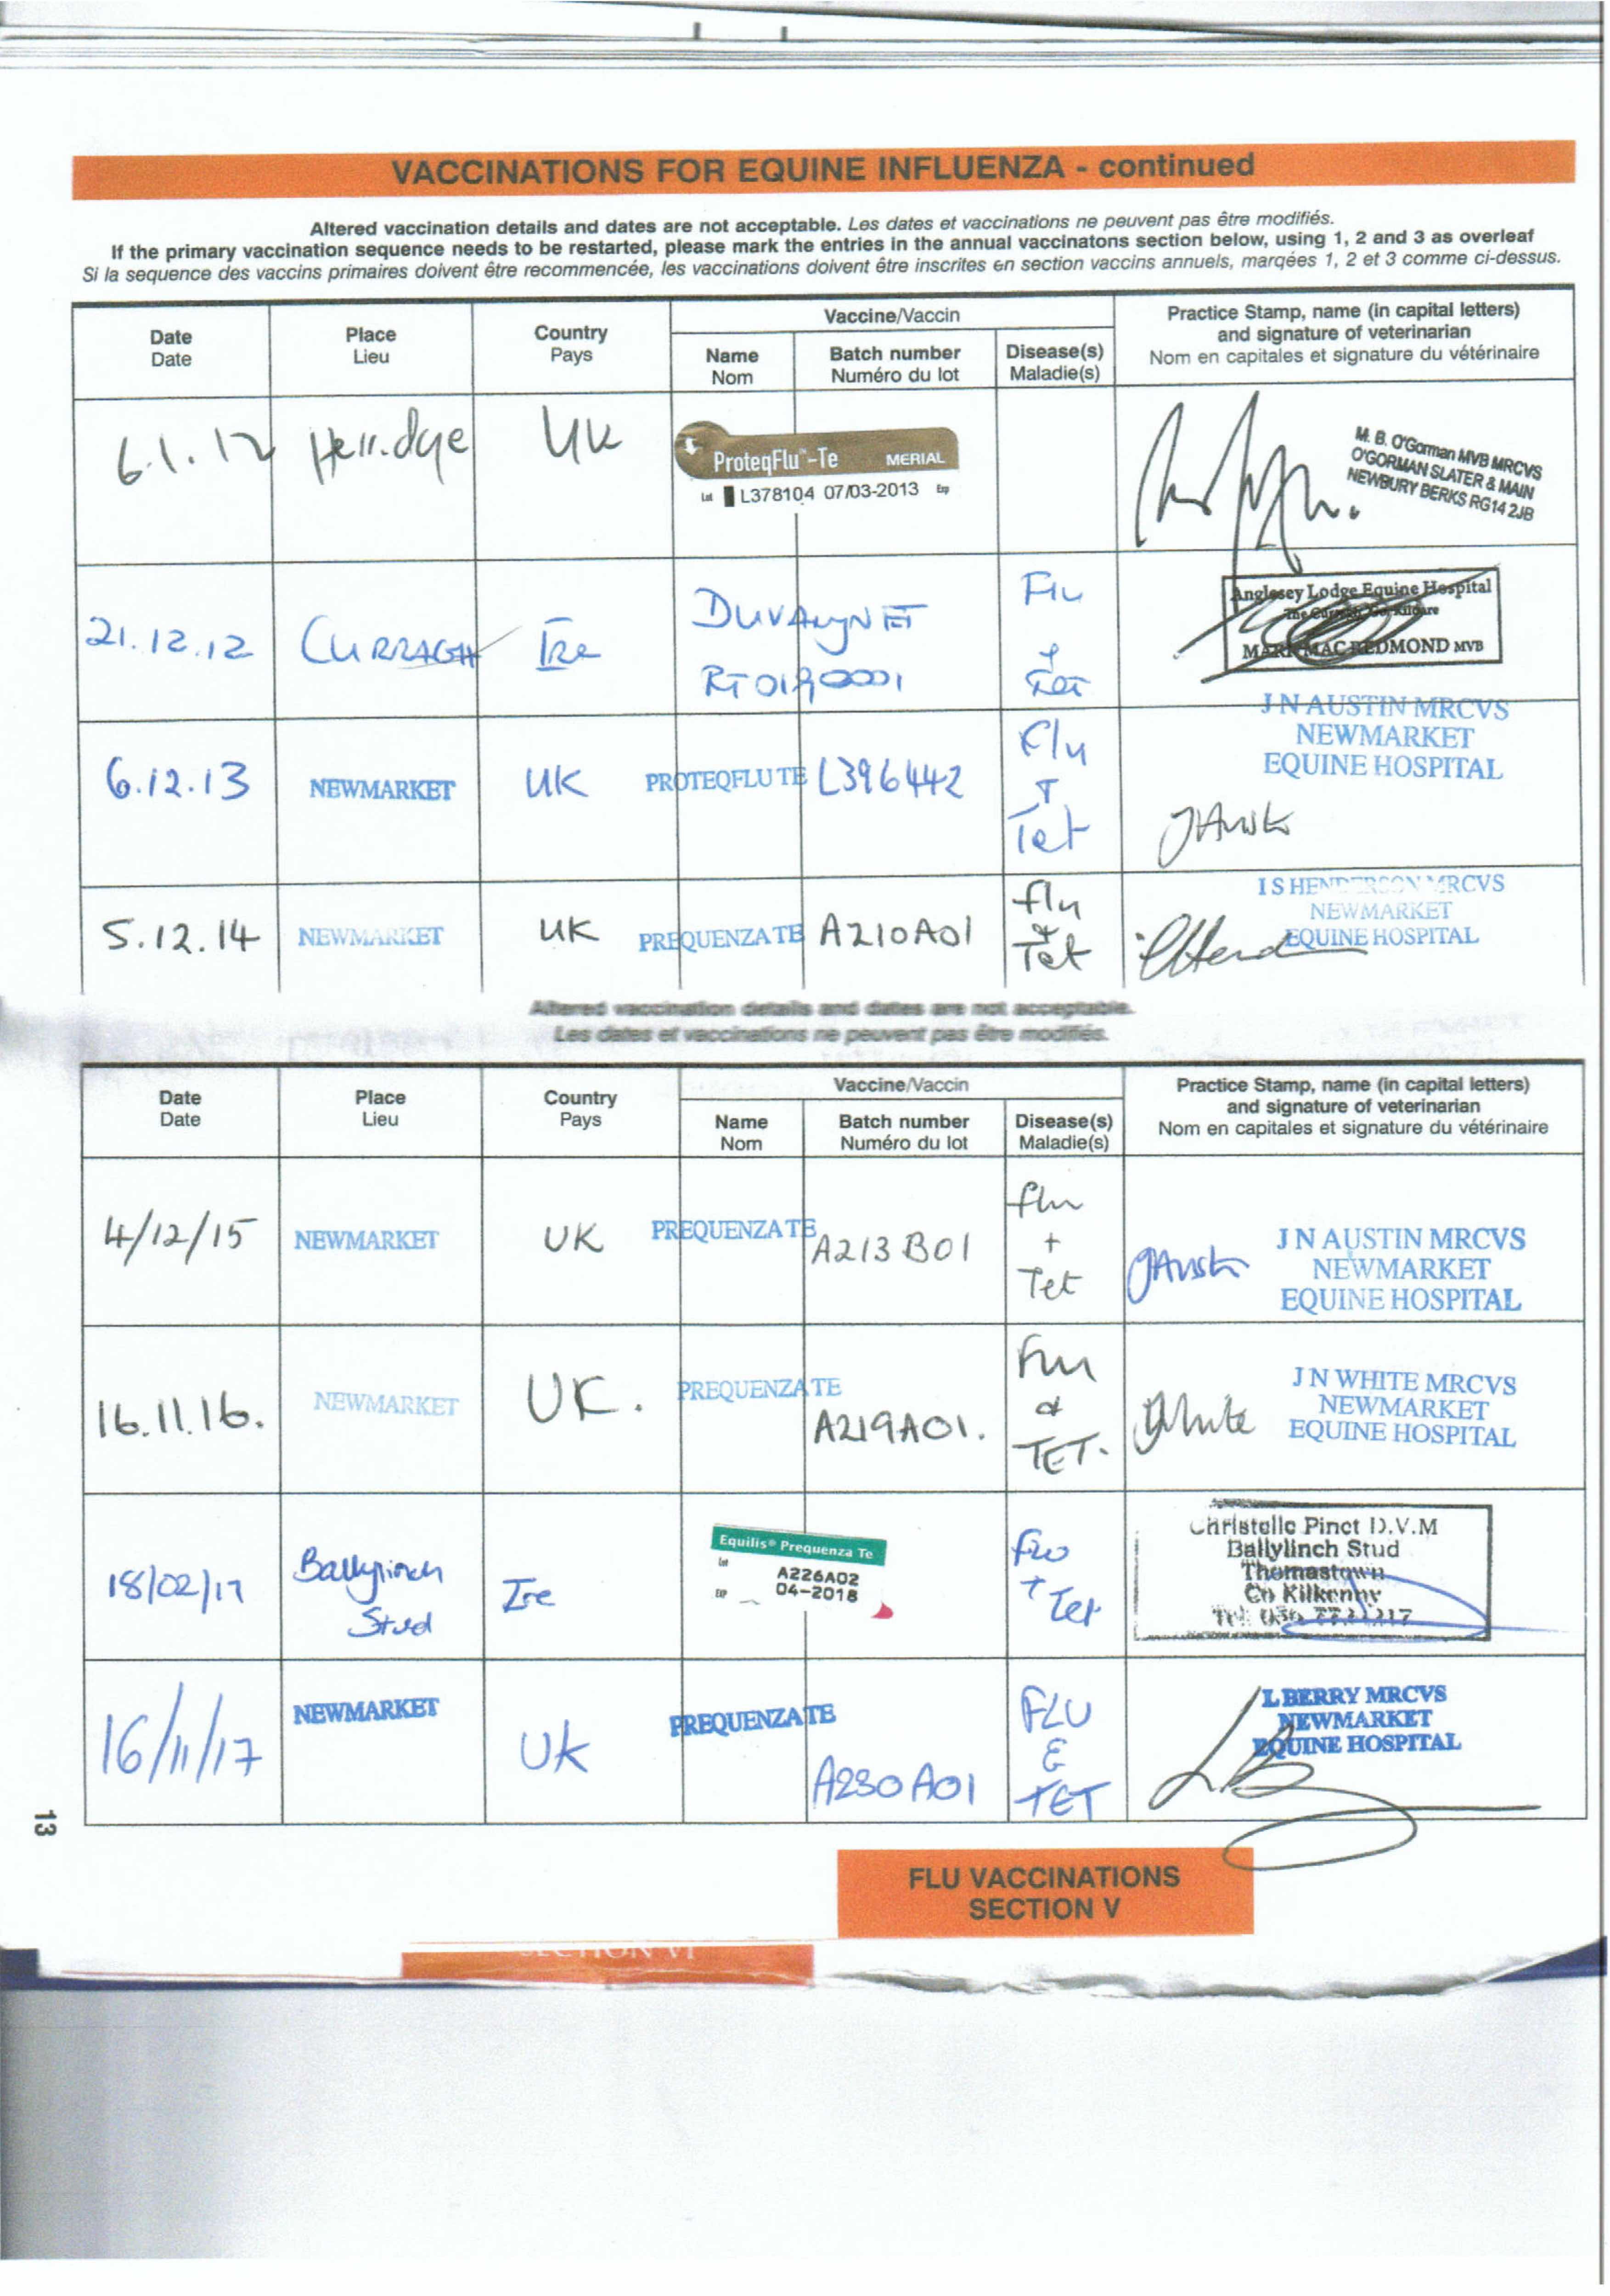 VACCINATIONS FOR EQUINE INFLUENZA - continued
Altered vaccination details and dates are not acceptable. Les dates et vaccinations ne peuvent pas être modifiés.
If the primary vaccination sequence needs to be restarted, please mark the entries in the annual vaccinatons section below, using 1, 2 and 3 as overleaf
Si la sequence des vaccins primaires doivent être recommencée, les vaccinations doivent être inscrites en section vaccins annuels, marqées 1, 2 et 3 comme ci-dessus.
Date
Date
Place
Lieu
Country
Pays
Vaccine/Vaccin
Name
Nom
Batch number
Numéro du lot
Disease(s)
Maladie(s)
Practice Stamp, name (in capital letters)
and signature of veterinarian
Nom en capitales et signature du vétérinaire
6.1.12
UK
ProteqFlu™-Te MERIAL
Lot L378104 07/03-2013 Exp
M. B. O'Gorman MVB MRCVS
O'GORMAN SLATER & MAIN
NEWBURY BERKS RG14 2JB
21.12.12
CURRAGH
Ire
Flu
Tet
Anglesey Lodge Equine Hospital
The Curragh, Co. Kildare
MARK MAC REDMOND MVB
6.12.13
NEWMARKET
UK
PROTEQFLU TE
L396442
Flu
+
Tet
J N AUSTIN MRCVS
NEWMARKET
EQUINE HOSPITAL
JAustin
5.12.14
NEWMARKET
UK
PREQUENZA TE
A210A01
flu
+
Tet
I S HENDERSON MRCVS
NEWMARKET
EQUINE HOSPITAL
Altered vaccination details and dates are not acceptable.
Les dates et vaccinations ne peuvent pas être modifiés.
Date
Date
Place
Lieu
Country
Pays
Vaccine/Vaccin
Name
Nom
Batch number
Numéro du lot
Disease(s)
Maladie(s)
Practice Stamp, name (in capital letters)
and signature of veterinarian
Nom en capitales et signature du vétérinaire
4/12/15
NEWMARKET
UK
PREQUENZA TE
A213B01
flu
+
Tet
JAustin
J N AUSTIN MRCVS
NEWMARKET
EQUINE HOSPITAL
16.11.16.
NEWMARKET
UK.
PREQUENZA TE
A219A01.
Flu
&
TET.
JWhite
J N WHITE MRCVS
NEWMARKET
EQUINE HOSPITAL
18/02/17
Ballylinch
Stud
Ire
Equilis® Prequenza Te
Lot A226A02
EXP 04-2018
Flu
+ Tet
Christelle Pinct D.V.M
Ballylinch Stud
Thomastown
Co Kilkenny
16/11/17
NEWMARKET
UK
PREQUENZA TE
A230A01
FLU
&
TET
L BERRY MRCVS
NEWMARKET
EQUINE HOSPITAL
13
FLU VACCINATIONS
SECTION V
SECTION VI